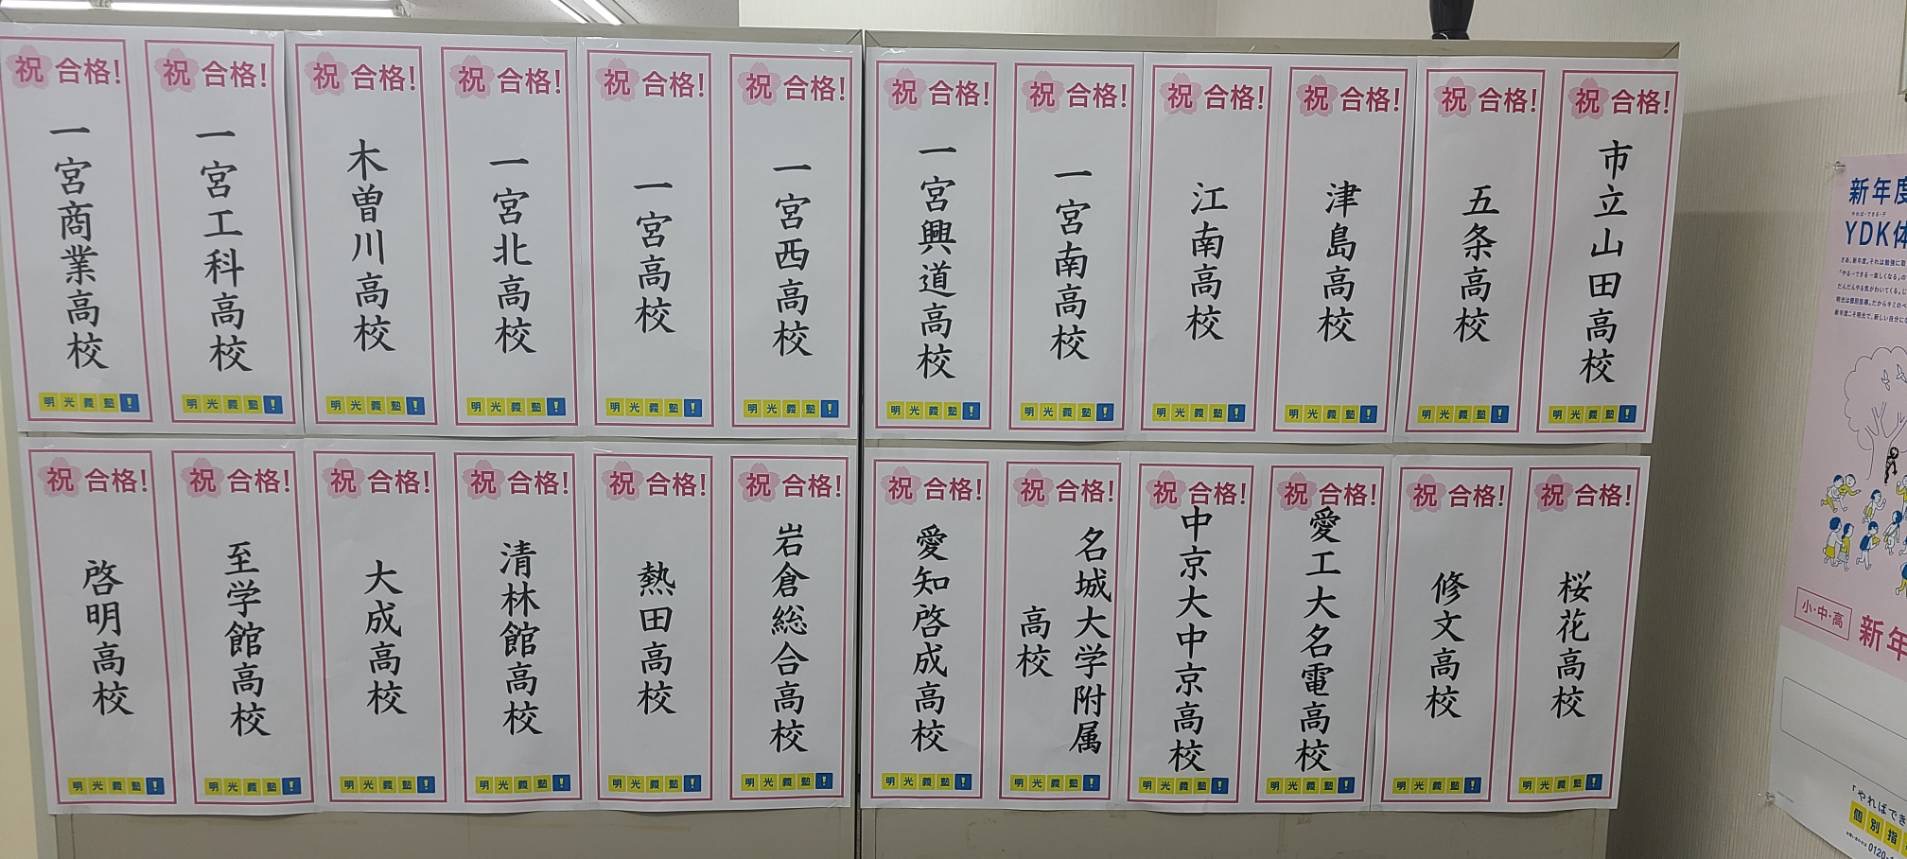 祝 合格!
一宮商業高校
明光義塾!
祝 合格!
一宮工科高校
明光義塾!
祝 合格!
木曽川高校
明光義塾!
祝 合格!
一宮北高校
明光義塾!
祝 合格!
一宮高校
明光義塾!
祝 合格!
一宮西高校
明光義塾!
祝 合格!
一宮興道高校
明光義塾!
祝 合格!
一宮南高校
明光義塾!
祝 合格!
江南高校
明光義塾!
祝 合格!
津島高校
明光義塾!
祝 合格!
五条高校
明光義塾!
祝 合格!
市立山田高校
明光義塾!
祝 合格!
啓明高校
明光義塾!
祝 合格!
至学館高校
明光義塾!
祝 合格!
大成高校
明光義塾!
祝 合格!
清林館高校
明光義塾!
祝 合格!
熱田高校
明光義塾!
祝 合格!
岩倉総合高校
明光義塾!
祝 合格!
愛知啓成高校
明光義塾!
祝 合格!
名城大学附属
高校
明光義塾!
祝 合格!
中京大中京高校
明光義塾!
祝 合格!
愛工大名電高校
明光義塾!
祝 合格!
修文高校
明光義塾!
祝 合格!
桜花高校
明光義塾!
新年度
YDK体
小・中・高
新年
「やればでき
個別指
0120-